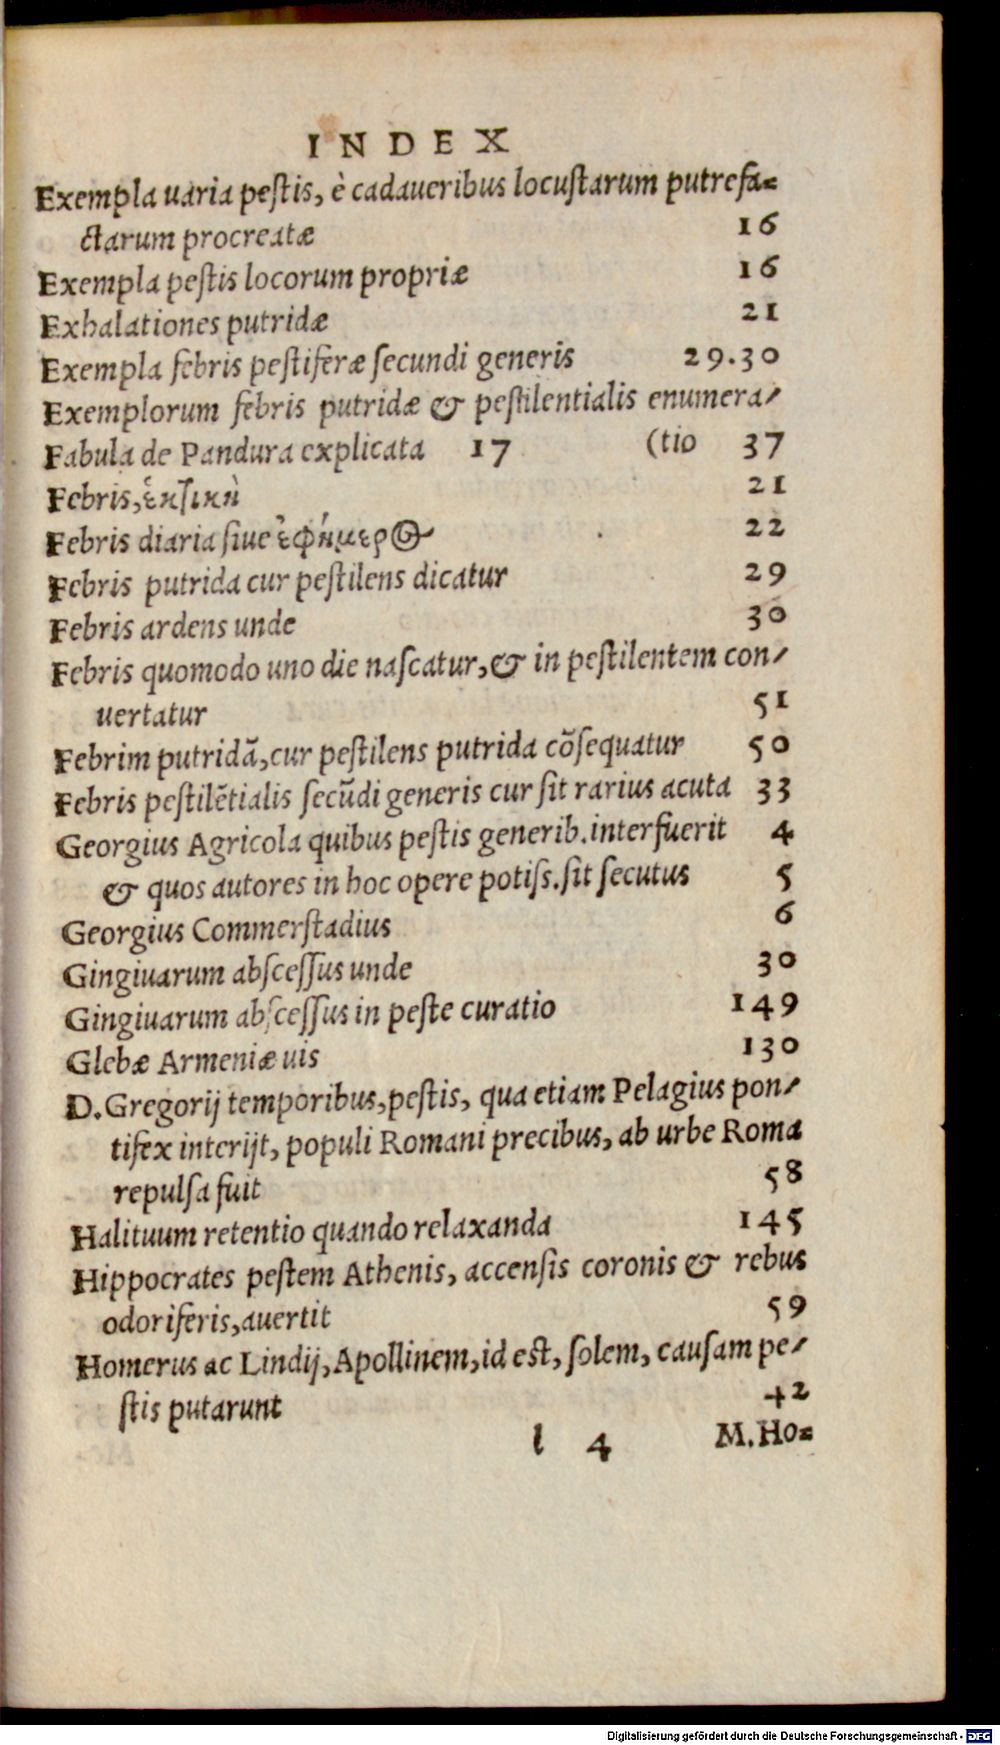 INDEX
Exempla uaria pestis, è cadaueribus locustarum putrefa=
ctarum procreatæ 16
Exempla pestis locorum propriæ 16
Exhalationes putridæ 21
Exempla febris pestiferæ secundi generis 29.30
Exemplorum febris putridæ & pestilentialis enumera/
Fabula de Pandura explicata 17 (tio 37
Febris, ἑκτικὴ 21
Febris diaria siue ἐφήμερος 22
Febris putrida cur pestilens dicatur 29
Febris ardens unde 30
Febris quomodo uno die nascatur, & in pestilentem con/
uertatur 51
Febrim putridã, cur pestilens putrida cõsequatur 50
Febris pestilẽtialis secũdi generis cur sit rarius acuta 33
Georgius Agricola quibus pestis generib. interfuerit 4
& quos autores in hoc opere potiss. sit secutus 5
Georgius Commerstadius 6
Gingiuarum abscessus unde 30
Gingiuarum abscessus in peste curatio 149
Glebæ Armeniæ uis 130
D. Gregorij temporibus, pestis, qua etiam Pelagius pon/
tifex interijt, populi Romani precibus, ab urbe Roma
repulsa fuit 58
Halituum retentio quando relaxanda 145
Hippocrates pestem Athenis, accensis coronis & rebus
odoriferis, auertit 59
Homerus ac Lindij, Apollinem, id est, solem, causam pe/
stis putarunt 42
l 4 M. Ho=
Digitalisierung gefördert durch die Deutsche Forschungsgemeinschaft - DFG